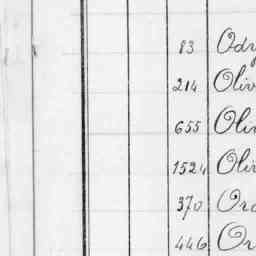 83 Ody
214 Oliv
655 Oliv
1524 Oliv
370 Ord
446 Or